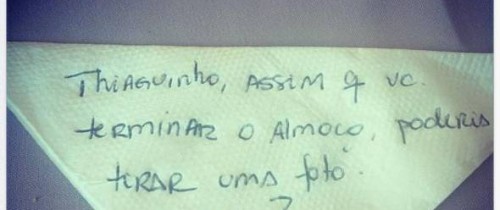 Thiaguinho, assim q vc.
terminar o almoço, poderia
tirar uma foto.
?